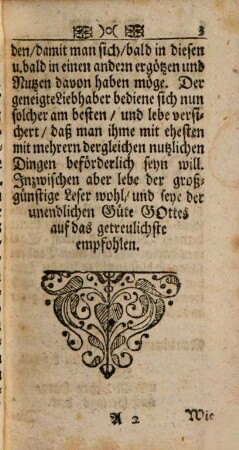 3
den/damit man sich/bald in diesen
u. bald in einen andern ergötzen und
Nutzen davon haben möge. Der
geneigte Liebhaber bediene sich nun
solcher am besten/ und lebe versi-
chert/ daß man ihme mit ehesten
mit mehrern dergleichen nutzlichen
Dingen beförderlich seyn will.
Inzwischen aber lebe der groß-
günstige Leser wohl/ und seye der
unendlichen Güte GOttes
auf das getreulichste
empfohlen.
A 2 Wie